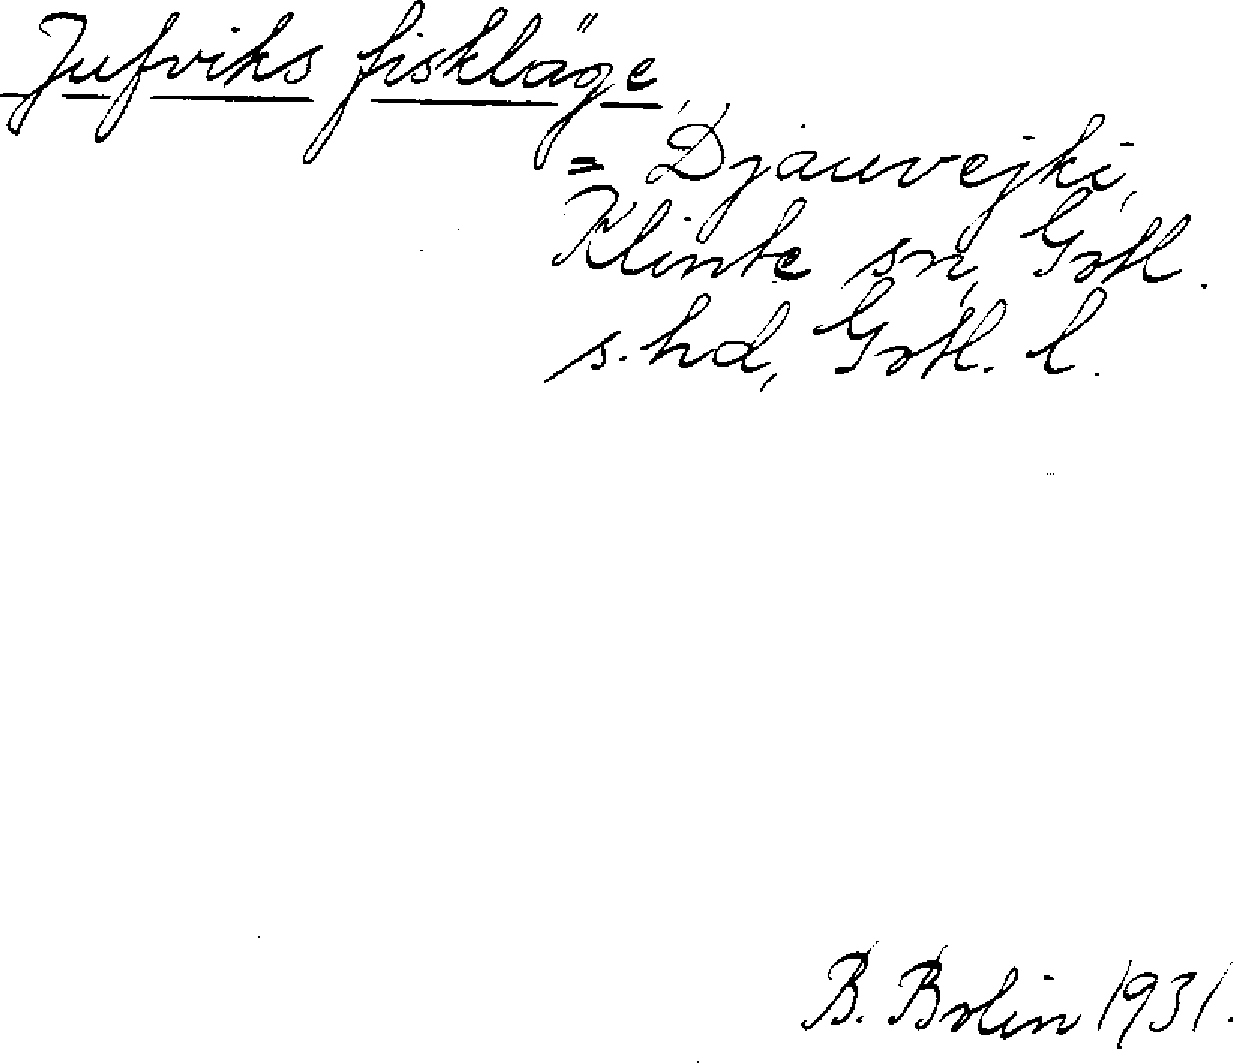 Jufviks fiskläge,
= Djauvejki,
Klinte sn, Gotl.
s. hd, Gotl. l.
B. Bolin 1931.